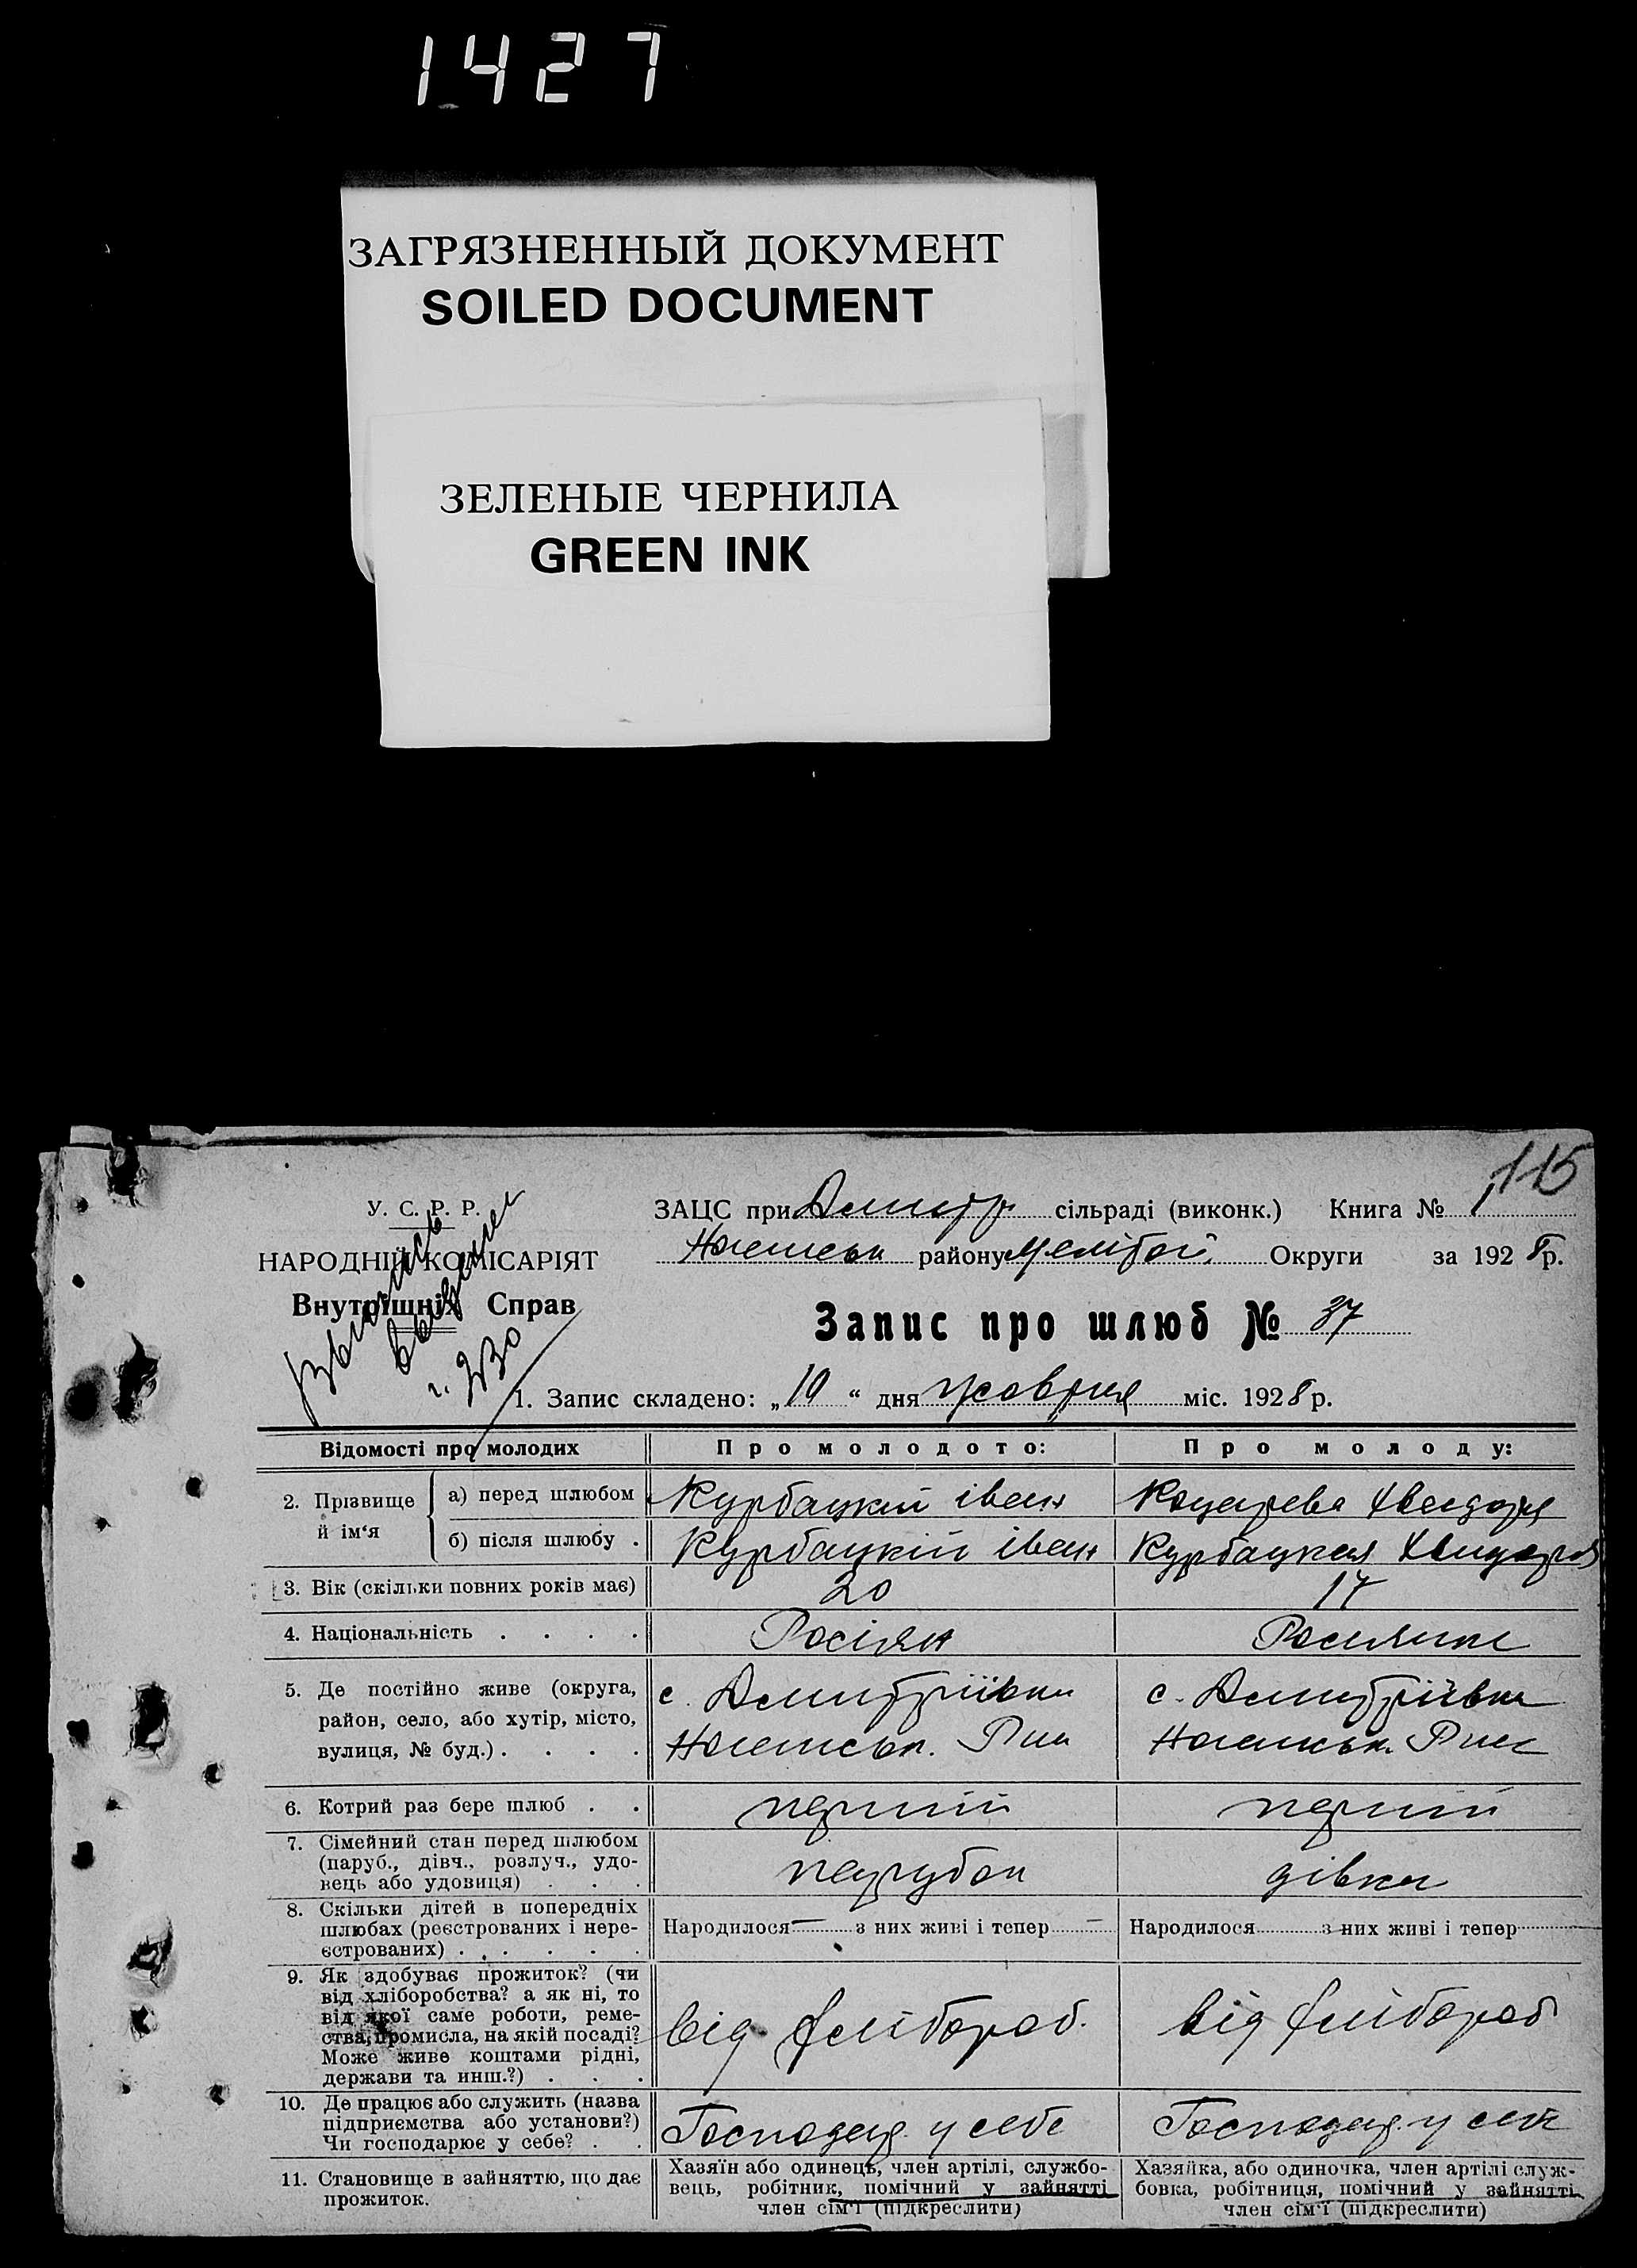 1427
ЗАГРЯЗНЕННЫЙ ДОКУМЕНТ
SOILED DOCUMENT
ЗЕЛЕНЫЕ ЧЕРНИЛА
GREEN INK
115
У. С. Р. Р.
НАРОДНІЙ КОМІСАРІЯТ
Внутрішніх Справ
ЗАЦС при Дмитр. сільраді (виконк.) Книга № 1
району Меліт Округи за 1928 р.
Запис про шлюб № 37
1. Запис складено: „10“ дня жовтня міс. 1928 р.
Відомості про молодих Про молодого: Про молоду:
2. Прізвище й ім‘я
а) перед шлюбом Курбацкий іван
б) після шлюбу . Курбацкій іван Курбацкая
3. Вік (скільки повних років має) 20 17
4. Національність . . . . Росіян Росиянка
5. Де постійно живе (округа, район, село, або хутір, місто, вулиця, № буд.) . . . .
с. Дмитріівка
с. Дмитріівка
6. Котрий раз бере шлюб . . перший перший
7. Сімейний стан перед шлюбом
(паруб., дівч., розлуч., удо-
вець або удовиця) . . . парубок дівка
8. Скільки дітей в попередніх
шлюбах (реєстрованих і нере-
єстрованих) . . . . . .
Народилося — з них живі і тепер —
Народилося з них живі і тепер
9. Як здобуває прожиток? (чи
від хліборобства? а як ні, то
від якої саме роботи, реме-
ства, промисла, на якій посаді?
Може живе коштами рідні,
держави та инш.?) . . .
від хлібороб.
від хлібороб
10. Де працює або служить (назва
підприємства або установи?)
Чи господарює у себе? . .
Господар. у себе
Господар. у себе
11. Становище в зайняттю, що дає
прожиток.
Хазяїн або одинець, член артілі, службо-
вець, робітник, помічний у зайнятті
член сім‘ї (підкреслити)
Хазяйка, або одиночка, член артілі служ-
бовка, робітниця, помічний у зайнятті
член сім‘ї (підкреслити)